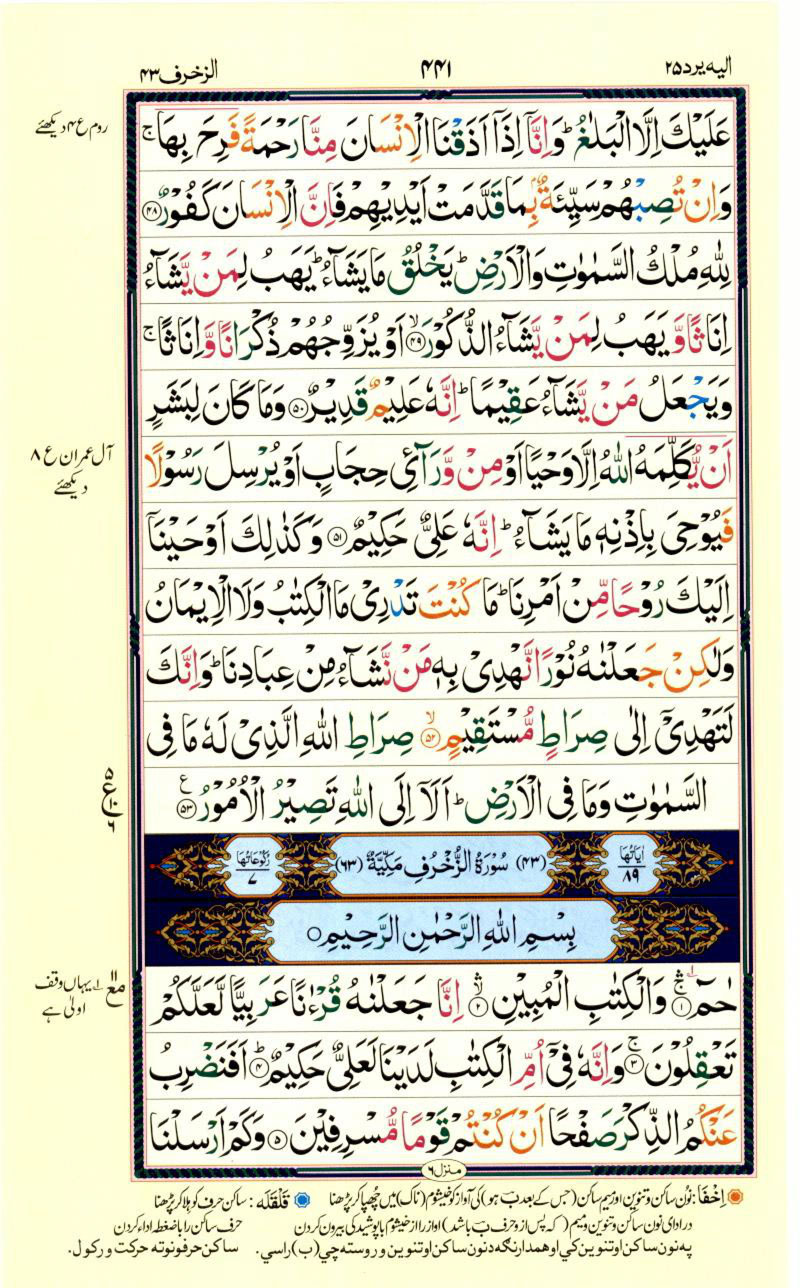 الیه یرد ۲۵
۴۴۱
الزخرف ۴۳
عَلَيْكَ اِلَّا الْبَلٰغُ ؕ وَاِنَّاۤ اِذَاۤ اَذَقْنَا الْاِنْسَانَ مِنَّا رَحْمَةً فَرِحَ بِهَا ۚ
روم ع ۴ دیکھئے
وَاِنْ تُصِبْهُمْ سَيِّئَةٌۢ بِمَا قَدَّمَتْ اَيْدِيْهِمْ فَاِنَّ الْاِنْسَانَ كَفُوْرٌ ﴿۴۸﴾
لِلّٰهِ مُلْكُ السَّمٰوٰتِ وَالْاَرْضِ ؕ يَخْلُقُ مَا يَشَآءُ ؕ يَهَبُ لِمَنْ يَّشَآءُ
اِنَاثًا وَّ يَهَبُ لِمَنْ يَّشَآءُ الذُّكُوْرَ ۙ﴿۴۹﴾ اَوْ يُزَوِّجُهُمْ ذُكْرَانًا وَّاِنَاثًا ۚ
وَيَجْعَلُ مَنْ يَّشَآءُ عَقِيْمًا ؕ اِنَّهٗ عَلِيْمٌ قَدِيْرٌ ﴿۵۰﴾ وَمَا كَانَ لِبَشَرٍ
اَنْ يُّكَلِّمَهُ اللّٰهُ اِلَّا وَحْيًا اَوْ مِنْ وَّرَآئِ حِجَابٍ اَوْ يُرْسِلَ رَسُوْلًا
آل عمران ع ۸
دیکھئے
فَيُوْحِيَ بِاِذْنِهٖ مَا يَشَآءُ ؕ اِنَّهٗ عَلِيٌّ حَكِيْمٌ ﴿۵۱﴾ وَكَذٰلِكَ اَوْحَيْنَاۤ
اِلَيْكَ رُوْحًا مِّنْ اَمْرِنَا ؕ مَا كُنْتَ تَدْرِيْ مَا الْكِتٰبُ وَلَا الْاِيْمَانُ
وَلٰكِنْ جَعَلْنٰهُ نُوْرًا نَّهْدِيْ بِهٖ مَنْ نَّشَآءُ مِنْ عِبَادِنَا ؕ وَاِنَّكَ
لَتَهْدِيْۤ اِلٰى صِرَاطٍ مُّسْتَقِيْمٍ ۙ﴿۵۲﴾ صِرَاطِ اللّٰهِ الَّذِيْ لَهٗ مَا فِي
السَّمٰوٰتِ وَمَا فِي الْاَرْضِ ؕ اَلَاۤ اِلَى اللّٰهِ تَصِيْرُ الْاُمُوْرُ ﴿۵۳﴾ ع
۵ ع ۱۰ ۶
اٰیاتها ۸۹
(۴۳) سُوْرَةُ الزُّخْرُفِ مَكِّيَّةٌ (۶۳)
رکوعاتها ۷
بِسْمِ اللّٰهِ الرَّحْمٰنِ الرَّحِيْمِ
حٰمٓ ۚۛ﴿۱﴾ وَالْكِتٰبِ الْمُبِيْنِ ۙۛ﴿۲﴾ اِنَّا جَعَلْنٰهُ قُرْءٰنًا عَرَبِيًّا لَّعَلَّكُمْ
مع ۱۱ ۱ یہاں وقف
اولیٰ ہے
تَعْقِلُوْنَ ۚ﴿۳﴾ وَاِنَّهٗ فِيْۤ اُمِّ الْكِتٰبِ لَدَيْنَا لَعَلِيٌّ حَكِيْمٌ ؕ﴿۴﴾ اَفَنَضْرِبُ
عَنْكُمُ الذِّكْرَ صَفْحًا اَنْ كُنْتُمْ قَوْمًا مُّسْرِفِيْنَ ﴿۵﴾ وَكَمْ اَرْسَلْنَا
منزل ۶
اِخْفَا : نُون ساکن و تنوین اور میم ساکن (جس کے بعد بَ ہو) کی آواز کو خیشوم (ناک) میں چھپا کر پڑھنا قَلْقَلَه : ساکن حرف کو ہلا کر پڑھنا
در ادای نون ساکن و تنوین و میم (که پس از و حرف بَ باشد) آواز را از خیشوم با پوشیدگی بیرون کردن حرف ساکن را با ضغطه ادا کردن
په نون ساکن او تنوین کې او همدا رنګه د نون ساکن او تنوین وروسته چې (ب) راسي. ساکن حرفونو ته حرکت ورکول.